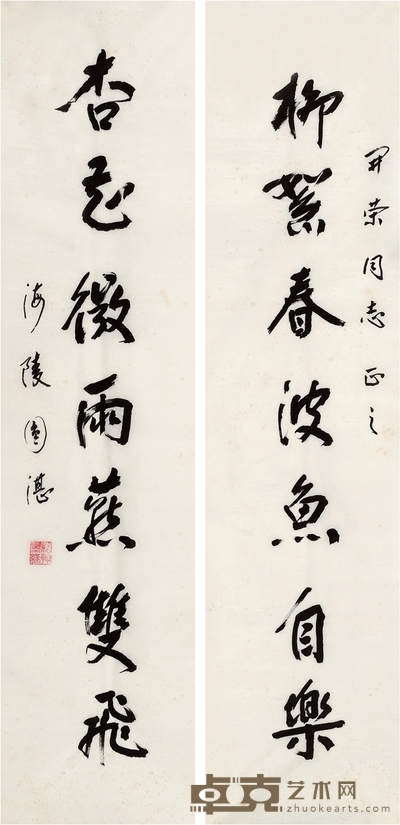 开荣同志正之
柳絮春波魚自樂
杏花微雨燕雙飛
海陵圖湛
卓克艺术网
zhuokearts.com